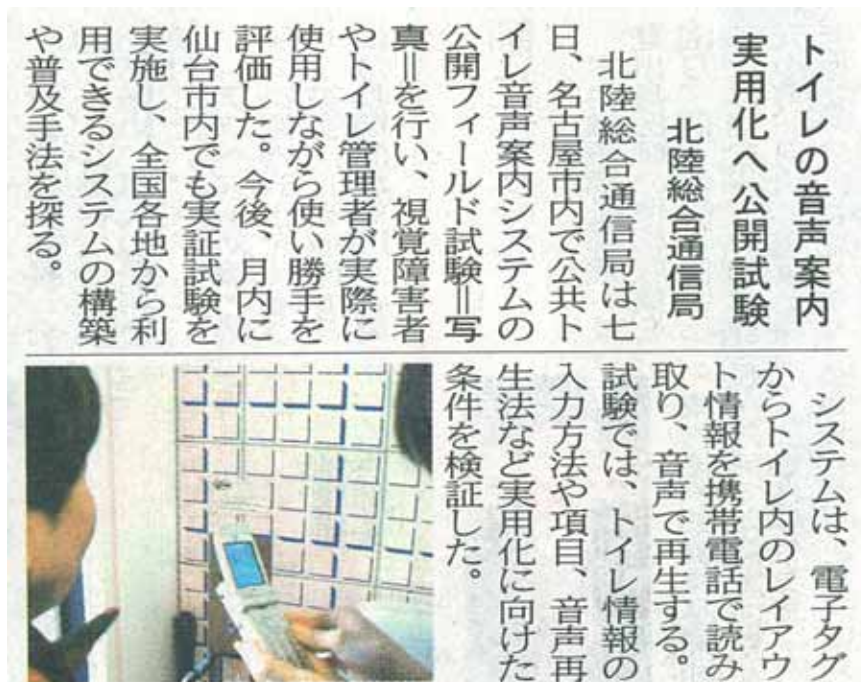 トイレの音声案内
実用化へ公開試験
北陸総合通信局
北陸総合通信局は七
日、名古屋市内で公共ト
イレ音声案内システムの
公開フィールド試験＝写
真＝を行い、視覚障害者
やトイレ管理者が実際に
使用しながら使い勝手を
評価した。今後、月内に
仙台市内でも実証試験を
実施し、全国各地から利
用できるシステムの構築
や普及手法を探る。
システムは、電子タグ
からトイレ内のレイアウ
ト情報を携帯電話で読み
取り、音声で再生する。
試験では、トイレ情報の
入力方法や項目、音声再
生法など実用化に向けた
条件を検証した。